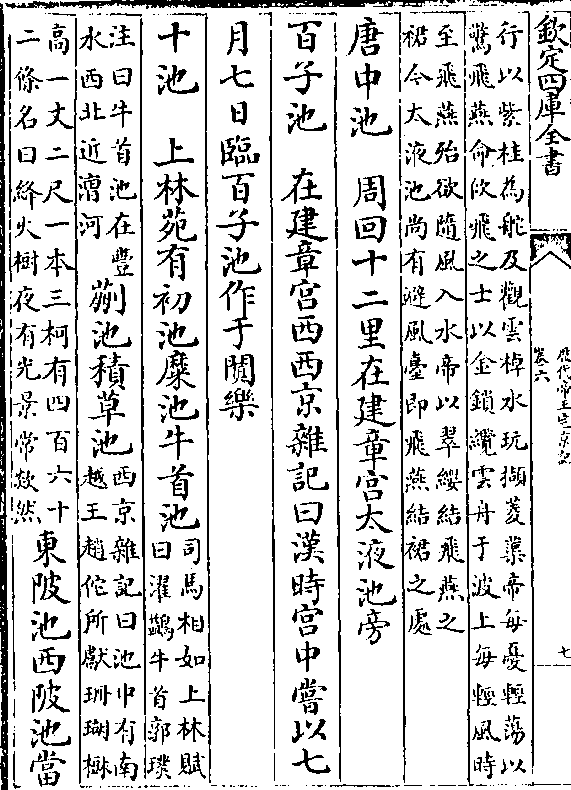 欽定四庫全書
歷代帝王宅京記
卷六
七
行以紫桂為舵及觀雲棹水玩擷菱蕖帝每憂輕蕩以
驚飛燕命佽飛之士以金鎖纜雲舟于波上每輕風時
至飛燕殆欲隨風入水帝以翠纓結飛燕之
裙今太液池尚有避風臺即飛燕結裙之處
唐中池　周回十二里在建章宮太液池旁
百子池　在建章宮西西京雜記曰漢時宮中嘗以七
月七日臨百子池作于闐樂
十池　上林苑有初池糜池牛首池
司馬相如上林賦
曰濯鷁牛首郭璞
注曰牛首池在豐
水西北近渭河
蒯池積草池
西京雜記曰池中有南
越王趙佗所獻珊瑚樹
高一丈二尺一本三柯有四百六十
二條名曰絳火樹夜有光景常欻然
東陂池西陂池當